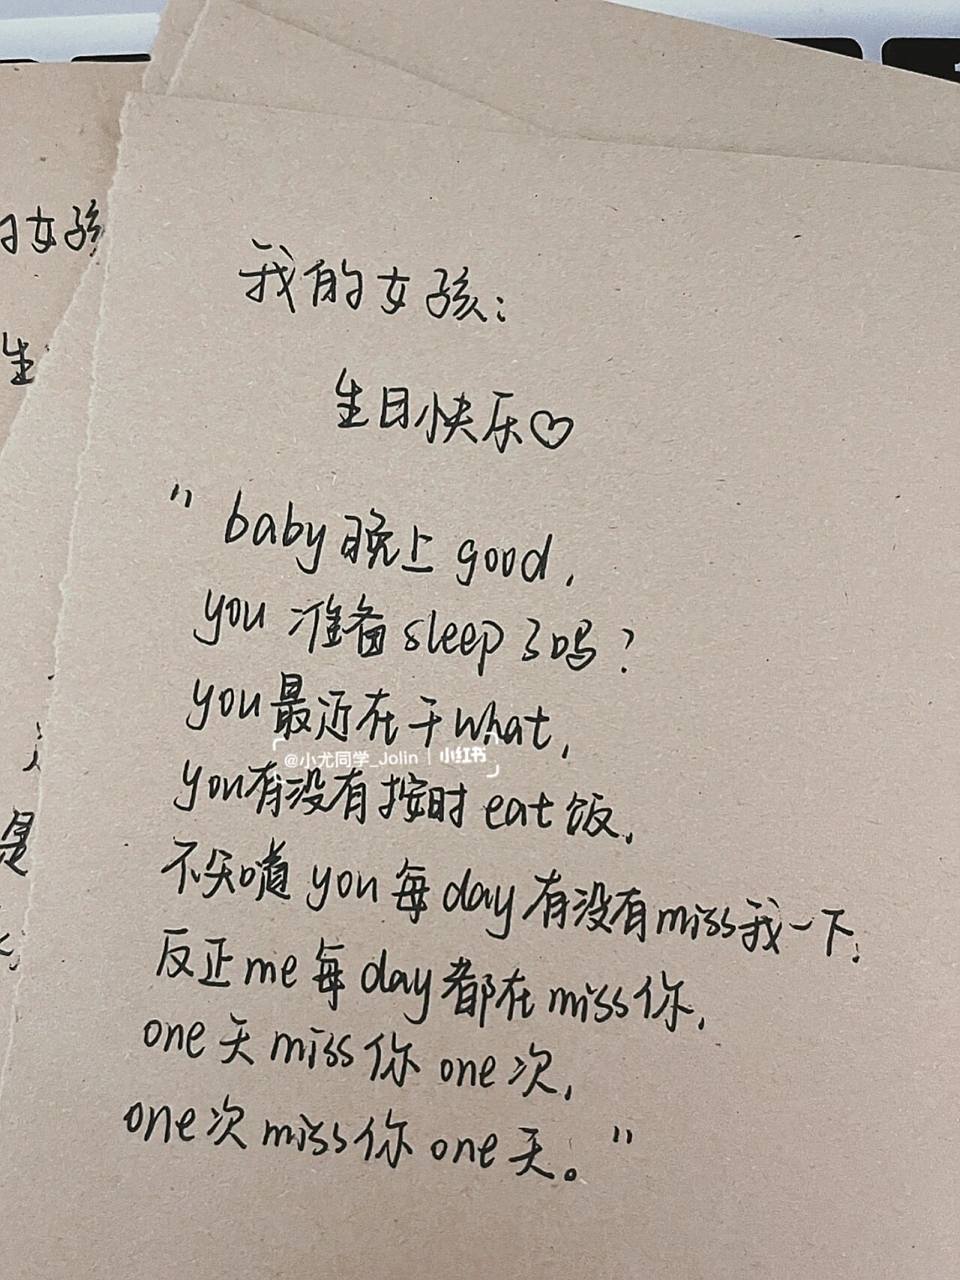 我的女孩：
生日快乐♡
"baby晚上good，
you 准备sleep了吗？
you最近在干what，
@小尤同学_Jolin | 小红书
you有没有按时eat饭，
不知道you每day有没有miss我一下，
反正me每day都在miss你，
one天miss你one次，
one次miss你one天。"
女孩
生
是